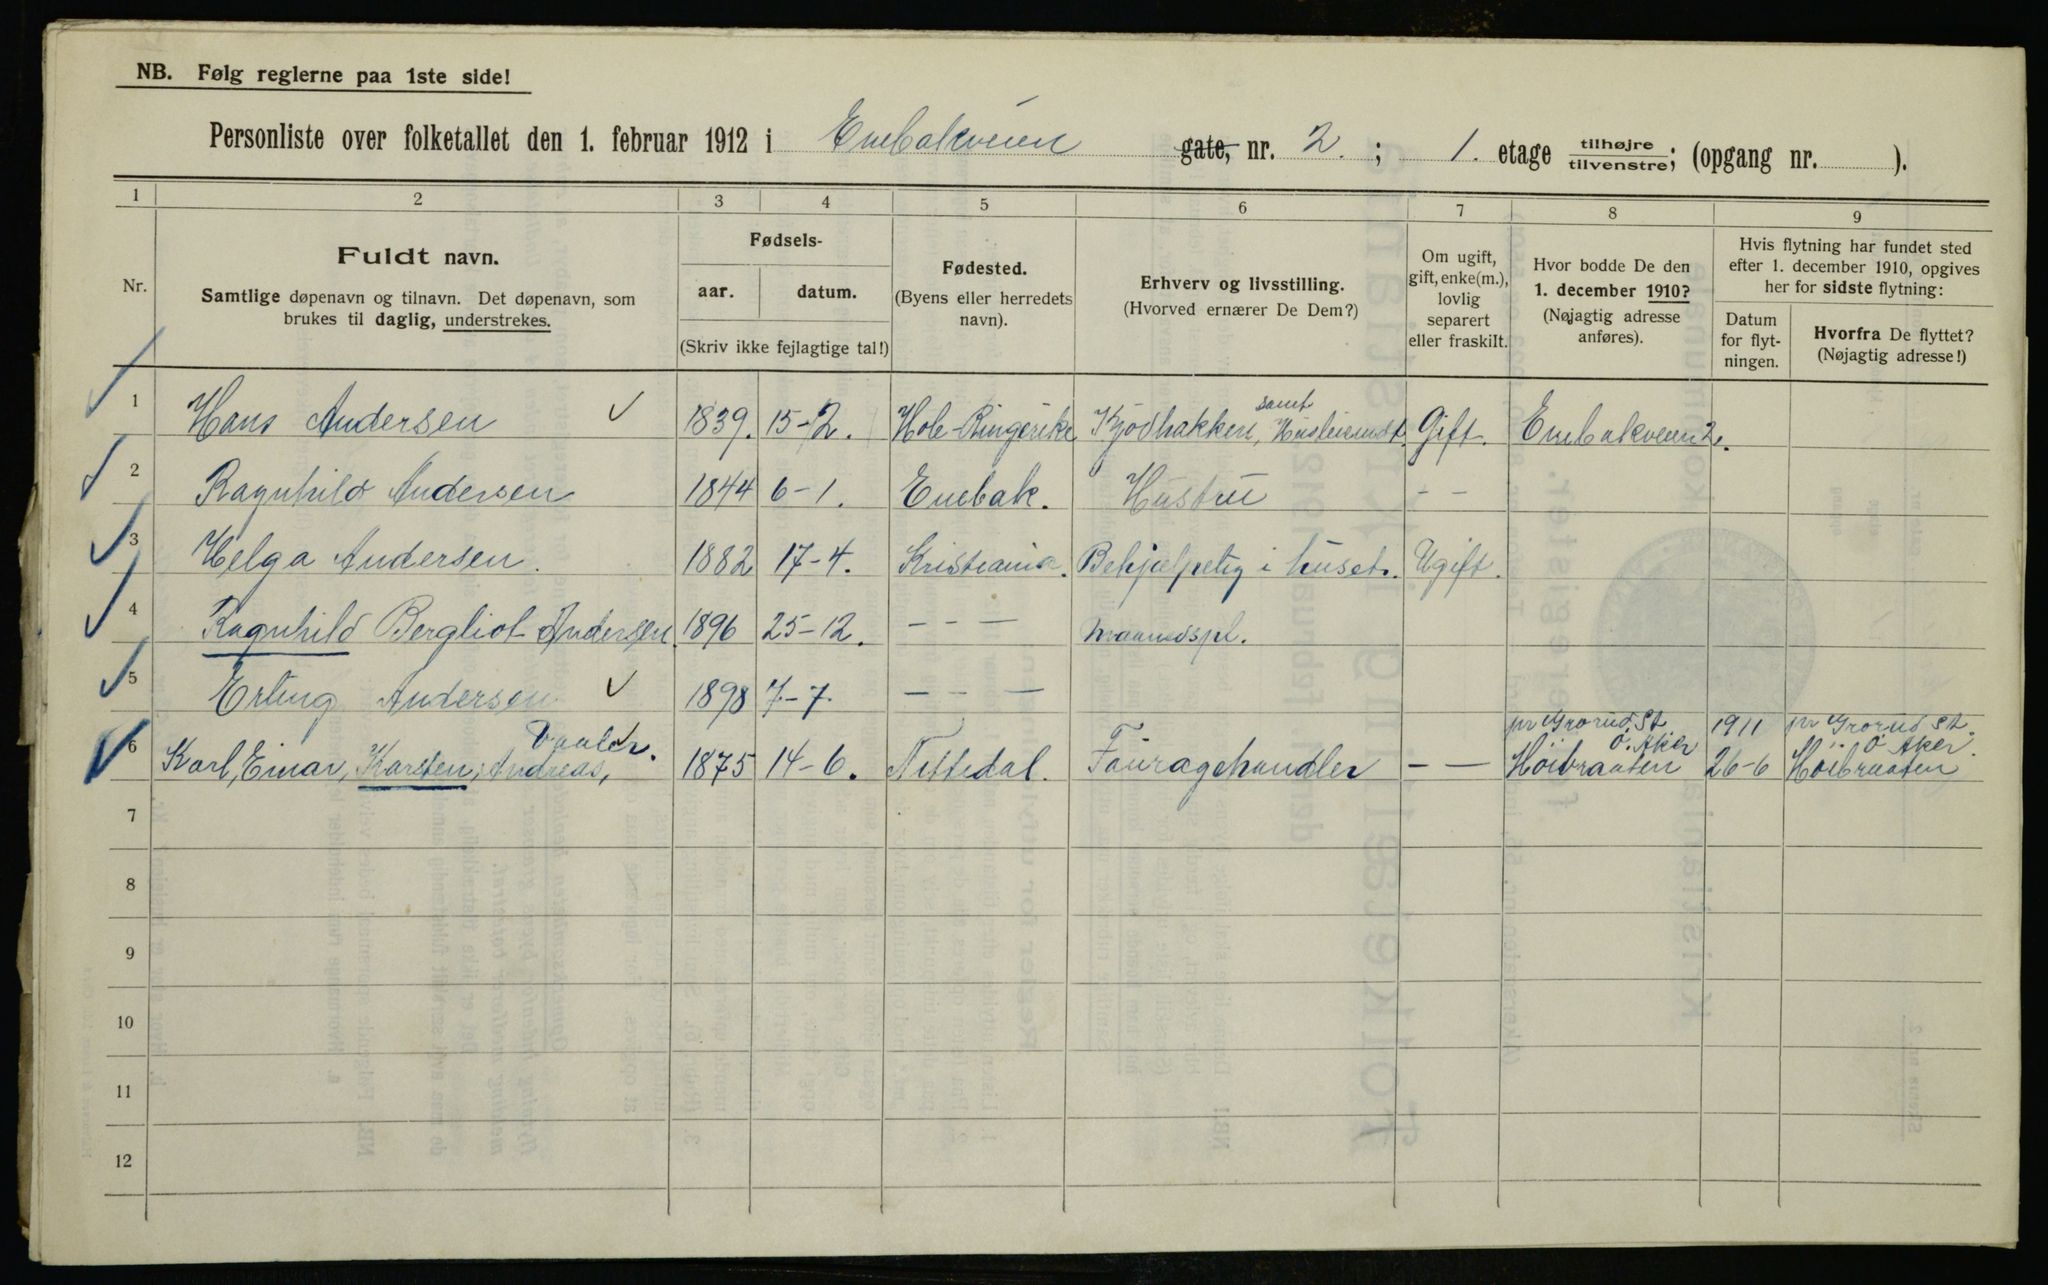 NB. Følg reglerne paa 1ste side!
Personliste over folketallet den 1. februar 1912 i Enebakveien gate, nr. 2. ; 1. etage tilhøjre tilvenstre; (opgang nr. ).
1 2 3 4 5 6 7 8 9
Nr.
Fuldt navn.
Samtlige døpenavn og tilnavn. Det døpenavn, som
brukes til daglig, understrekes.
Fødsels-
aar. datum.
(Skriv ikke fejlagtige tal!)
Fødested.
(Byens eller herredets
navn).
Erhverv og livsstilling.
(Hvorved ernærer De Dem?)
Om ugift,
gift, enke(m.),
lovlig
separert
eller fraskilt.
Hvor bodde De den
1. december 1910?
(Nøjagtig adresse
anføres).
Hvis flytning har fundet sted
efter 1. december 1910, opgives
her for sidste flytning:
Datum
for flyt-
ningen.
Hvorfra De flyttet?
(Nøjagtig adresse!)
1 Hans Andersen 1839. 15-2. Hole Ringerike Kjödhakkeri, samt Gift. Enebakveien 2.
2 Ragnhild Andersen 1844 6-1. Enebak. Hustru - -
3 Helga Andersen. 1882 17-4. Kristiania. Behjælpelig i huset. Ugift.
4 Ragnhild Bergliot Andersen. 1896 25-12. - - - Maanedspl.
5 Erling Andersen 1898 7-7. - - -
6 Karl, Einar, Karsten, Andreas, Vaaler. 1875 14-6. Nittedal. Fouragehandler - - pr Grorud St. Ö. Aker Höibraaten 1911 26-6 pr Grorud St. Ö. Aker. Höibraaten
7
8
9
10
11
12